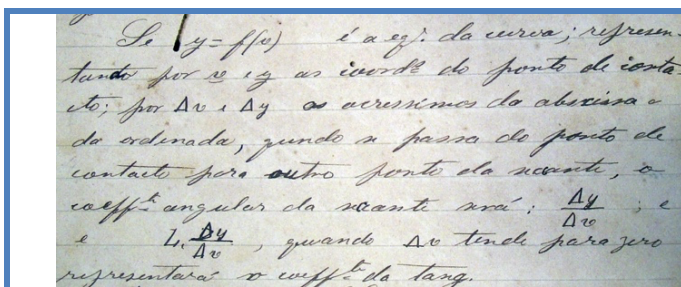 Se y = f(v) é a eqª. da curva; represen-
tando por v e y as coordˢ do ponto de conta-
cto; por Δv e Δy os accressimos da abscissa e
da ordenada, quando se passa do ponto de
contacto para outro ponto da secante, o
coeffᵗᵉ angular da secante será; Δy/Δv ; e
e L. Δy/Δv , quando Δv tende para zero
representará o coeffᵗᵉ da tang.